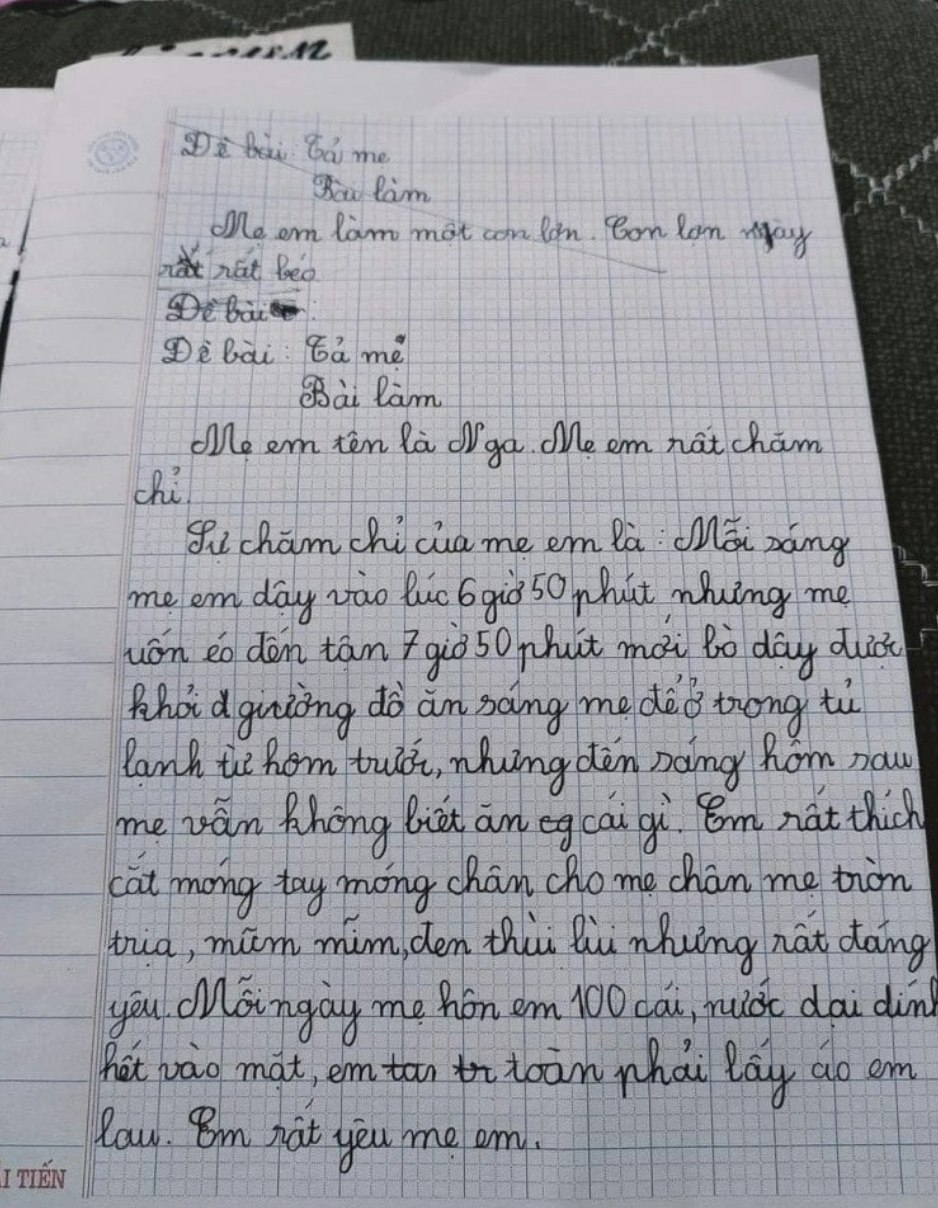 Đề bài: Tả mẹ
Bài làm
Mẹ em làm một con lợn. Con lợn này
rất rất béo
Đề bài:
Đề bài: Tả mẹ
Bài làm
Mẹ em tên là Nga. Mẹ em rất chăm
chỉ.
Sự chăm chỉ của mẹ em là: Mỗi sáng
mẹ em dậy vào lúc 6 giờ 50 phút nhưng mẹ
uốn éo đến tận 7 giờ 50 phút mới bò dậy được
khỏi giường đồ ăn sáng mẹ để ở trong tủ
lạnh từ hôm trước, nhưng đến sáng hôm sau
mẹ vẫn không biết ăn cái gì. Em rất thích
cắt móng tay móng chân cho mẹ chân mẹ tròn
trịa, mũm mĩm, đen thùi lùi nhưng rất đáng
yêu. Mỗi ngày mẹ hôn em 100 cái, nước dại dính
hết vào mặt, em toàn phải lấy áo em
lau. Em rất yêu mẹ em.
ẢI TIẾN